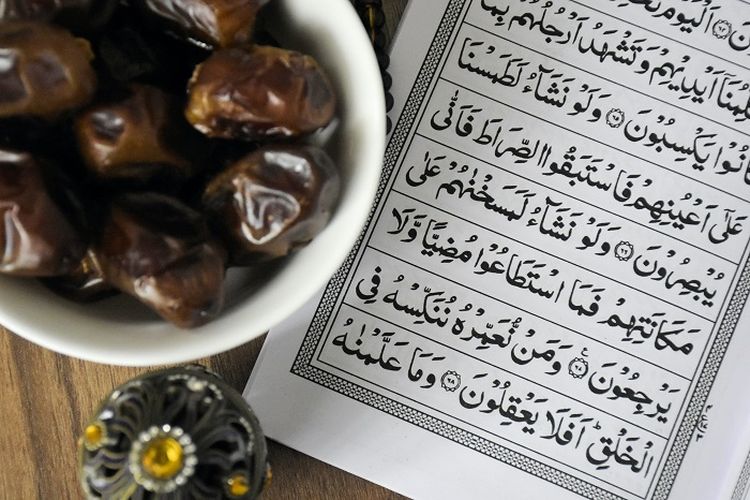 ن ﴿٦٤﴾ اَلْيَوْمَ
مُنَاۤ اَيْدِيْهِمْ وَ تَشْهَدُ اَرْجُلُهُمْ بِمَا
كَانُوْا يَكْسِبُوْنَ ﴿٦٥﴾ وَ لَوْ نَشَآءُ لَطَمَسْنَا
عَلٰۤى اَعْيُنِهِمْ فَاسْتَبَقُوا الصِّرَاطَ فَاَنّٰى
يُبْصِرُوْنَ ﴿٦٦﴾ وَ لَوْ نَشَآءُ لَمَسَخْنٰهُمْ عَلٰى
مَكَانَتِهِمْ فَمَا اسْتَطَاعُوْا مُضِيًّا وَّ لَا
يَرْجِعُوْنَ ﴿٦٧﴾ وَ مَنْ نُّعَمِّرْهُ نُنَكِّسْهُ فِى
الْخَلْقِ ؕ اَفَلَا يَعْقِلُوْنَ ﴿٦٨﴾ وَ مَا عَلَّمْنٰهُ